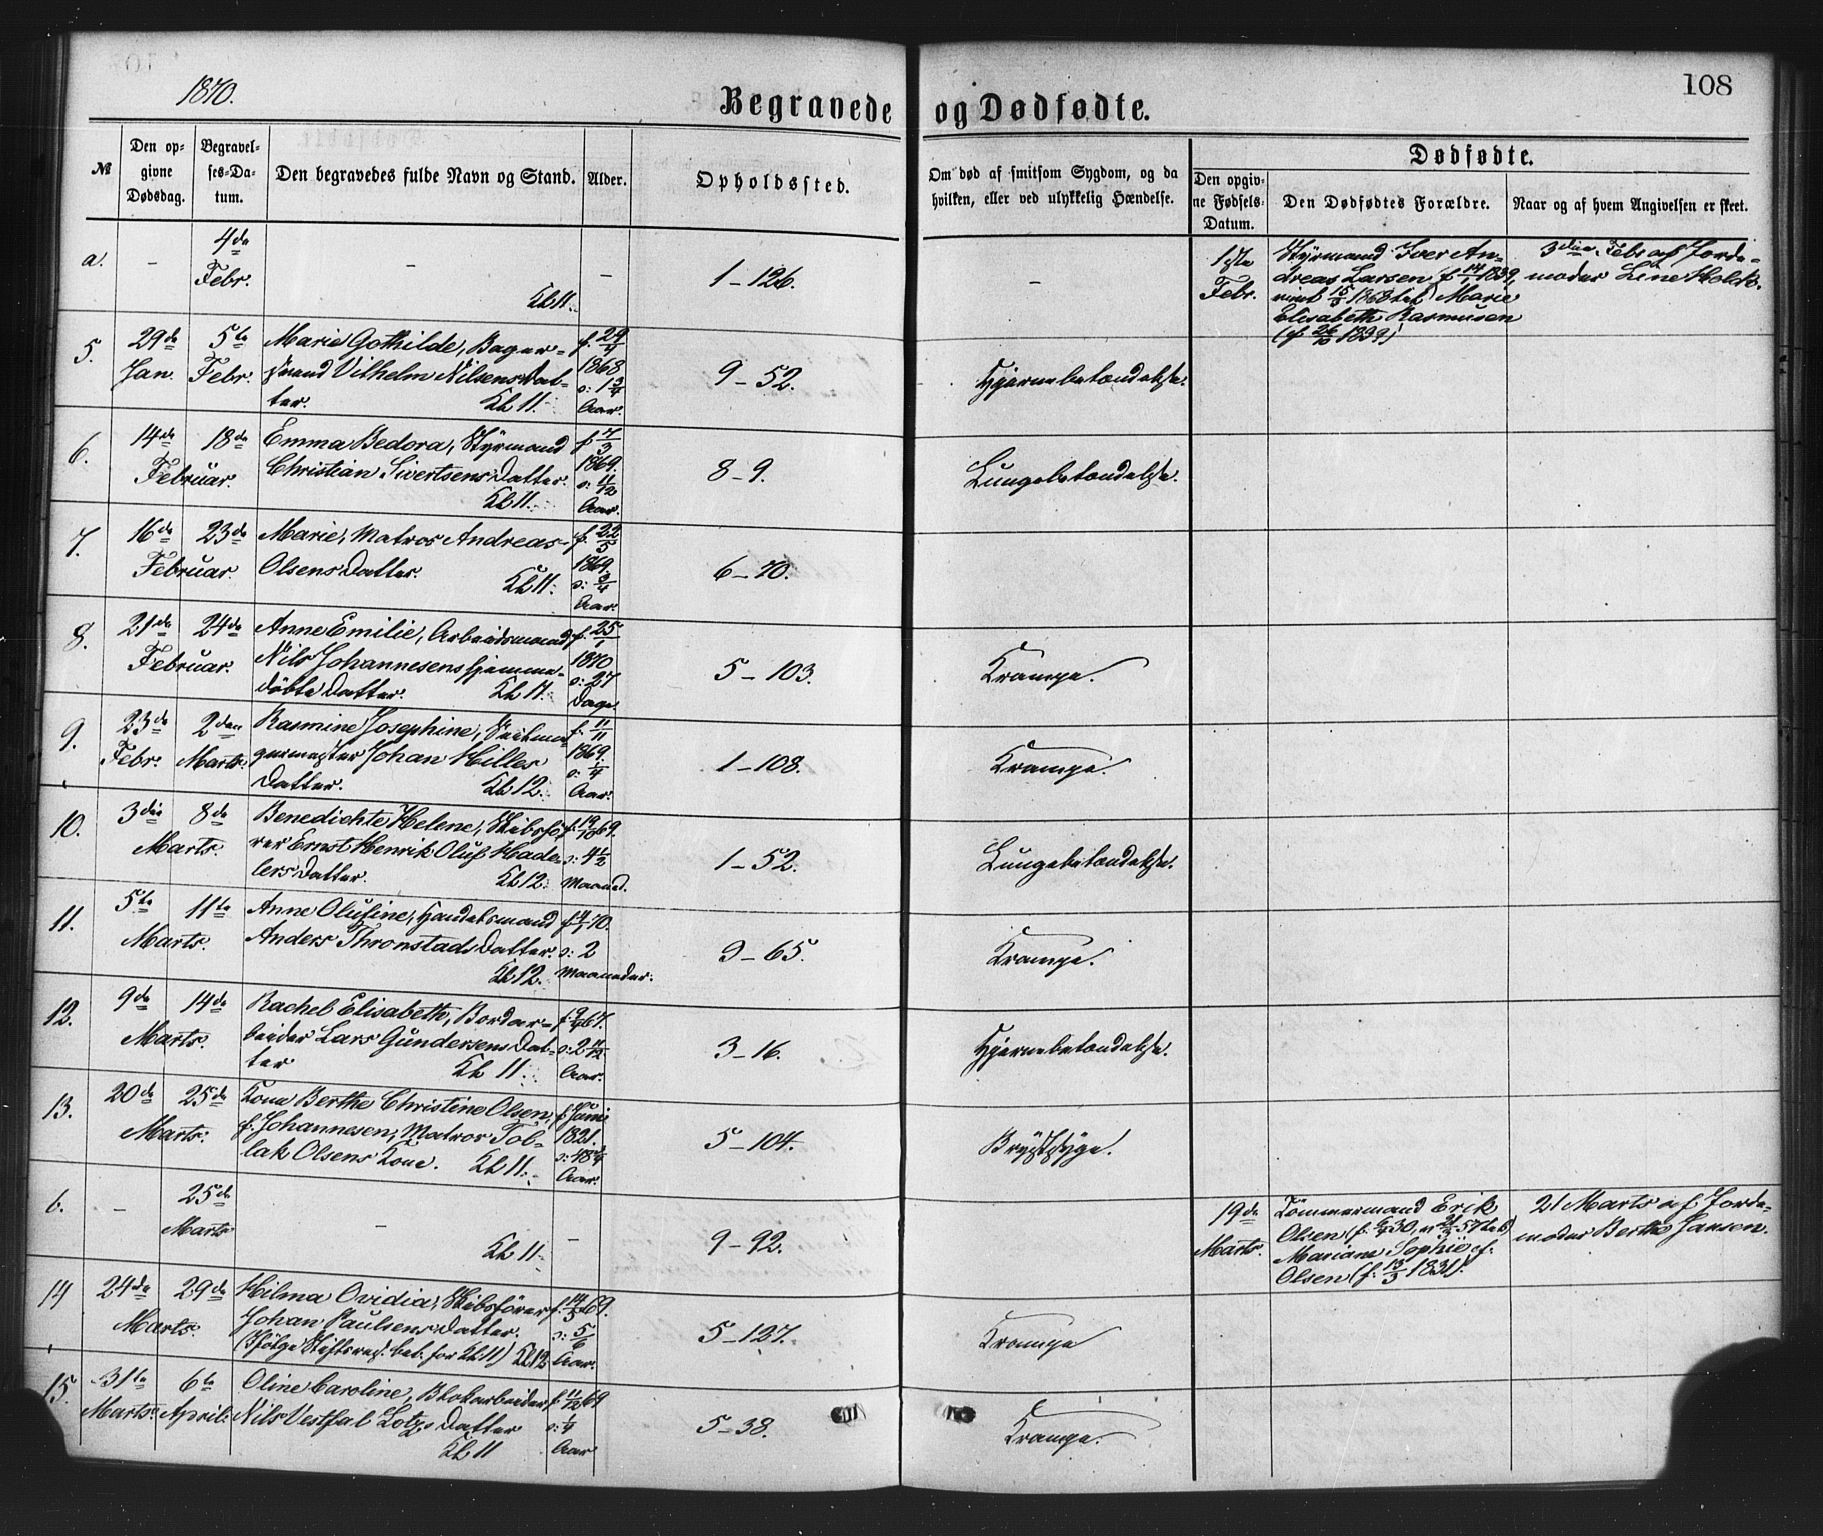 1870.
Begravede og Dødfødte.
108
№
Den opgivne Dødsdag.
Begravelses-Datum.
Den begravedes fulde Navn og Stand.
Alder.
Opholdssted.
Om død af smitsom Sygdom, og da hvilken, eller ved ulykkelig Hændelse.
Dødfødte.
Den opgivne Fødsels-Datum.
Den Dødfødtes Forældre.
Naar og af hvem Angivelsen er skeet.
a. - 4de Febr. - Kl. 11. - 1 - 126. -
1ste Febr.
Styrmand Iver An-
dreas Larsen f. 14/1 1839,
Marie
Elisabeth Rasmusen
3die Febr. af Jorde-
moder Line Holck.
5. 29de Jan. 5te Febr.
Marie Gothilde, Bager-
svend Vilhelm Nilsens Dat-
ter. Kl. 11.
1868 1 3/4 Aar.
9 - 52.
Hjernebetændelse.
6. 14de 18de Februar.
Emma Bedora, Styrmand
Christian Sivertsens Datter.
Kl. 11.
f. 7/3 1869. 11/12 Aar.
8 - 9.
Lungebetændelse.
7. 16de 23de Februar.
Marie, Matros Andreas
Olsens Datter. Kl. 11.
f. 22/5 1869. 3/4 Aar.
6 - 70.
8. 21de 24de Februar.
Anne Emilie, Arbeidsmand
Nils Johannesens hjemme-
døbte Datter. Kl. 11.
f. 25/1 1870 27 Dage.
5 - 103.
Krampe.
9. 23de Febr. 2den Marts.
Rasmine Josephine, Seilma-
germester Johan Hilles
Datter. Kl. 12.
f. 11/11 1869. 1/4 Aar.
1 - 108.
Krampe.
10. 3die 8de Marts.
Benedichte Helene, Skibsfø-
rer Ernst Henrik Oluf Hade-
lers Datter. Kl. 12.
f. 19/10 69. 4 1/2 Maaned.
1 - 52.
Lungebetændelse.
11. 5te 11te Marts.
Anne Olufine, Handelsmand
Anders Thronstads Datter.
Kl. 12.
70. 2 Maaneder.
9 - 65.
Krampe.
12. 9de 14de Marts.
Rachel Elisabeth, Bordar-
beider Lars Gundersens Dat-
ter Kl. 11.
67. 2 11/12 Aar.
3 - 16.
Hjernebetændelse.
13. 20de 25de Marts.
Kone Berthe Christine Olsen,
f. Johannesen, Matros Tol-
lak Olsens Kone. Kl. 11.
f. Juni 1821. 48 3/4 Aar.
5 - 104.
Brystsyge.
b. - 25de Marts - Kl. 11. - 9 - 92.
19de Marts.
Tømmermand Erik
Olsen
Mariane Sophie f.
Olsen (f. 13/3 1831).
21 Marts af Jorde-
moder Berthe Jansen.
14 24de 29de Marts.
Hilma Ovidia, Skibsfører
Johan Paulsens Datter.
(Ifølge Stiftsres. bet. for Kl. 11) Kl. 12
69. 5/6 Aar.
5 - 127.
Krampe
15. 31te Marts. 6te April.
Oline Caroline, Blokarbeider
Nils Vestfal Lotzes Datter
Kl. 11
f. 11/12 69 1/4 Aar
5 - 38.
Krampe.